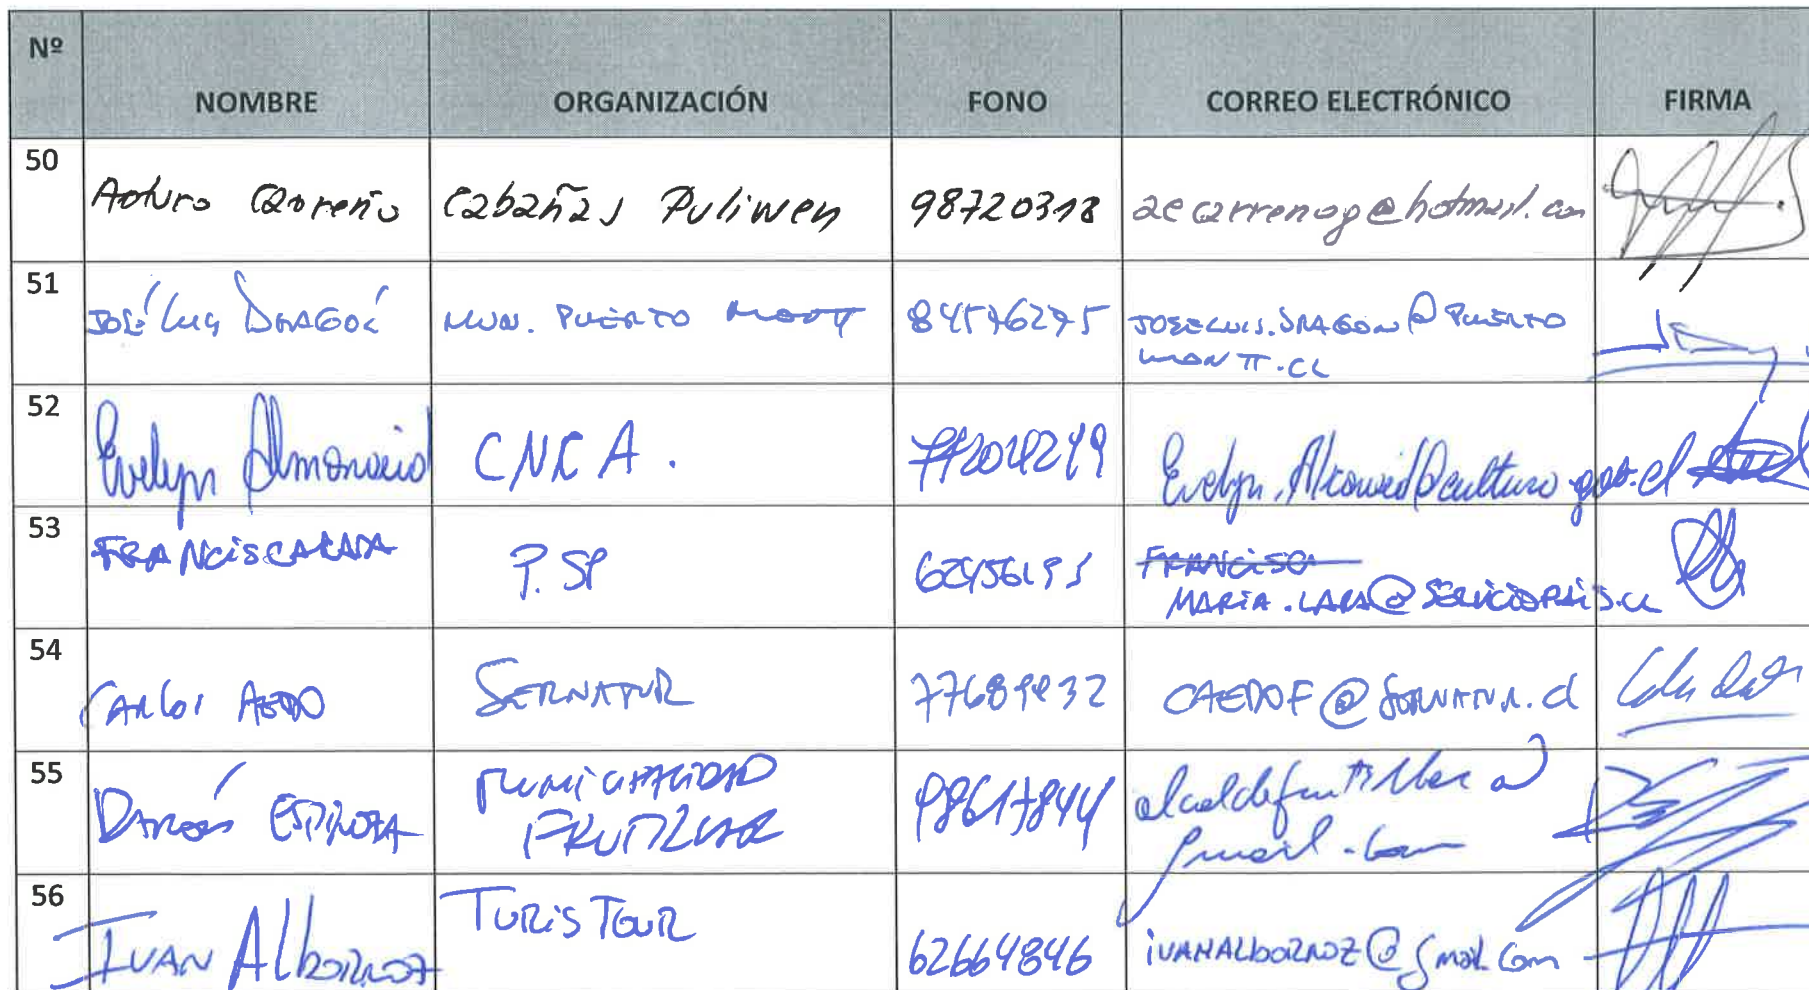 Nº NOMBRE ORGANIZACIÓN FONO CORREO ELECTRÓNICO FIRMA
50 Arturo Carreño Cabañas Puliwen 98720318 aecarrenog@hotmail.com
51 JOSÉ Luis DRAGÓN MUN. PUERTO MONTT 84576275 JOSELUIS.DRAGON@PUERTO
MONTT.CL
52 Evelyn Almonacid CNCA.
53 FRANCISCA LARA P. SP
MARIA.LARA@SERVICIOPAIS.CL
54 CARLOS AEDO SERNATUR CAEDOF@SERNATUR.cl
55 ESPINOZA MUNICIPALIDAD
FRUTILLAR 98617844
gmail.com
56 IVAN Albornoz TURISTOUR 62664846 IVANALbORNOZ@gmail.com